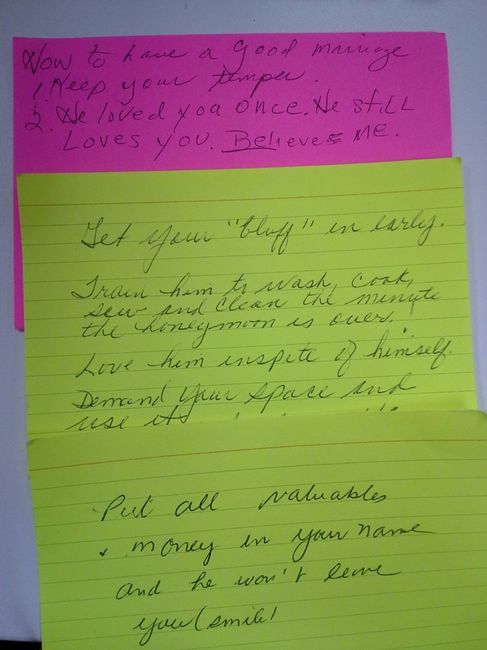 How to have a good marriage
1. Keep your temper.
2. He loved you once. He still
Loves you. Believe ME.
Get your "bluff" in early.
Train him to wash, cook,
sew and clean the minute
the honeymoon is over.
Love him inspite of himself.
Demand your space and
use it
Put all valuables
+ money in your name
and he won't leave
you (smile)